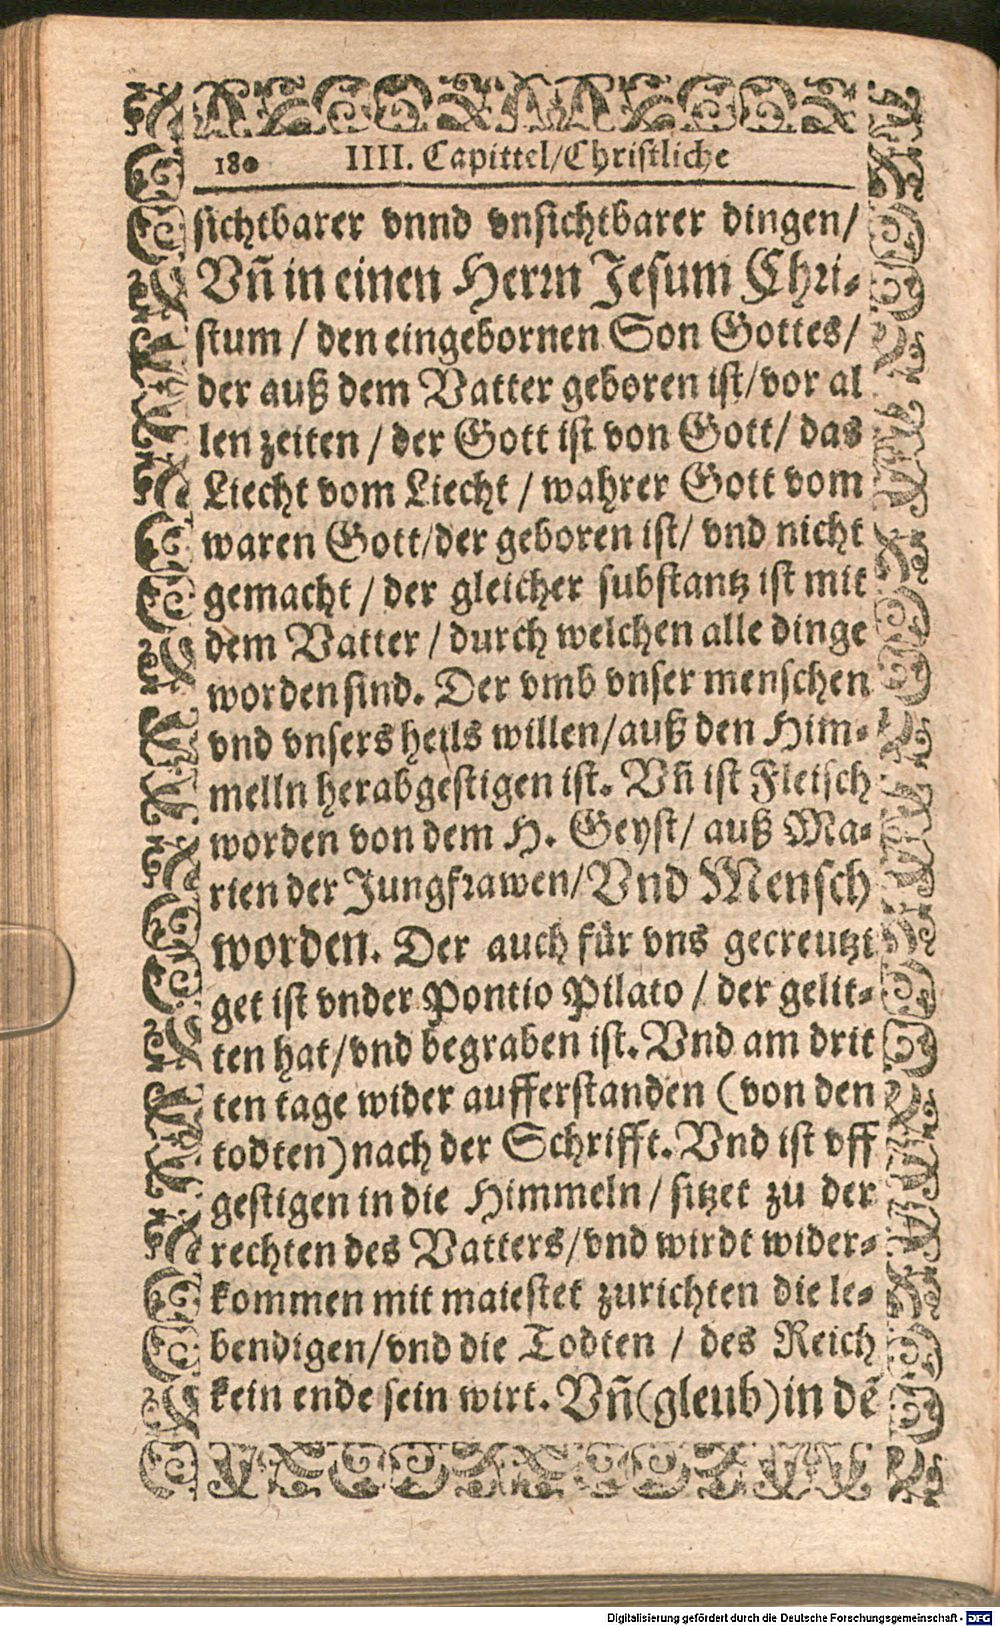 180 IIII. Capittel/Christliche
sichtbarer vnnd vnsichtbarer dingen/
Vñ in einen Herrn Jesum Chri-
stum / den eingebornen Son Gottes/
der auß dem Vatter geboren ist/vor al
len zeiten / der Gott ist von Gott/ das
Liecht vom Liecht / wahrer Gott vom
waren Gott/der geboren ist/ vnd nicht
gemacht / der gleicher substantz ist mit
dem Vatter / durch welchen alle dinge
worden sind. Der vmb vnser menschen
vnd vnsers heils willen/auß den Him-
melln herabgestigen ist. Vñ ist Fleisch
worden von dem H. Geyst/ auß Ma-
rien der Jungfrawen/Vnd Mensch
worden. Der auch für vns gecreutzi
get ist vnder Pontio Pilato / der gelit-
ten hat/vnd begraben ist. Vnd am drit
ten tage wider aufferstanden (von den
todten) nach der Schrifft. Vnd ist vff
gestigen in die Himmeln / sitzet zu der
rechten des Vatters/vnd wirdt wider-
kommen mit maiestet zurichten die le-
bendigen/vnd die Todten / des Reich
kein ende sein wirt. Vñ (gleub) in dē
Digitalisierung gefördert durch die Deutsche Forschungsgemeinschaft - DFG